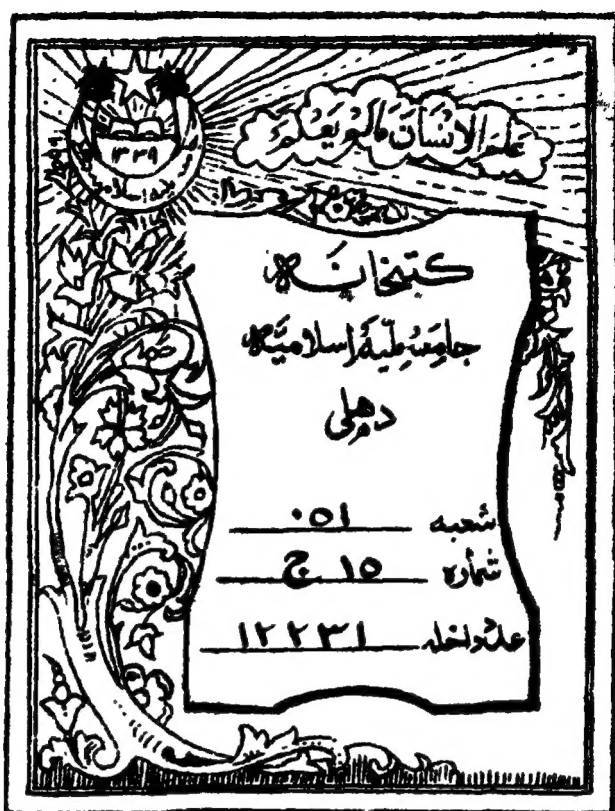 عَلَّمَ الْاِنْسَانَ مَا لَمْ يَعْلَمْ
۱۳۳۹
کتبخانہ
جامعہ ملیہ اسلامیہ
دہلی
شعبہ ۰۵۱
شمارہ ۱۵ ج
عدد داخلہ ۱۲۲۳۱